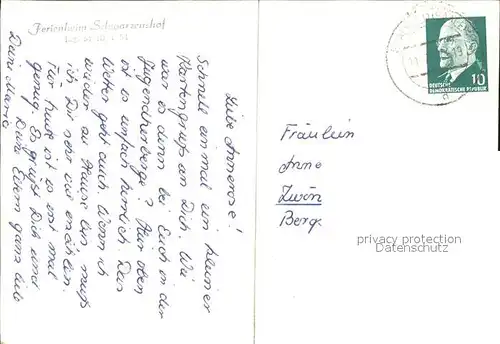 Ferienheim Schwarzenshof
Liebe Annerose!
Schnell einmal ein kleiner
Kartengruß an Dich. Wie
war es denn bei Euch in der
Jugendherberge? Hier oben
ist es einfach herrlich. Das
Wetter geht auch. Wenn ich
wieder zu Hause bin muß
ich Dir sehr viel erzählen.
Für heute ist es erst mal
genug. Es grüßt Dich und
Deine Eltern ganz lieb
Deine Maria
DEUTSCHE
DEMOKRATISCHE REPUBLIK
10
Fräulein
Anne
Berg
privacy protection
watermark